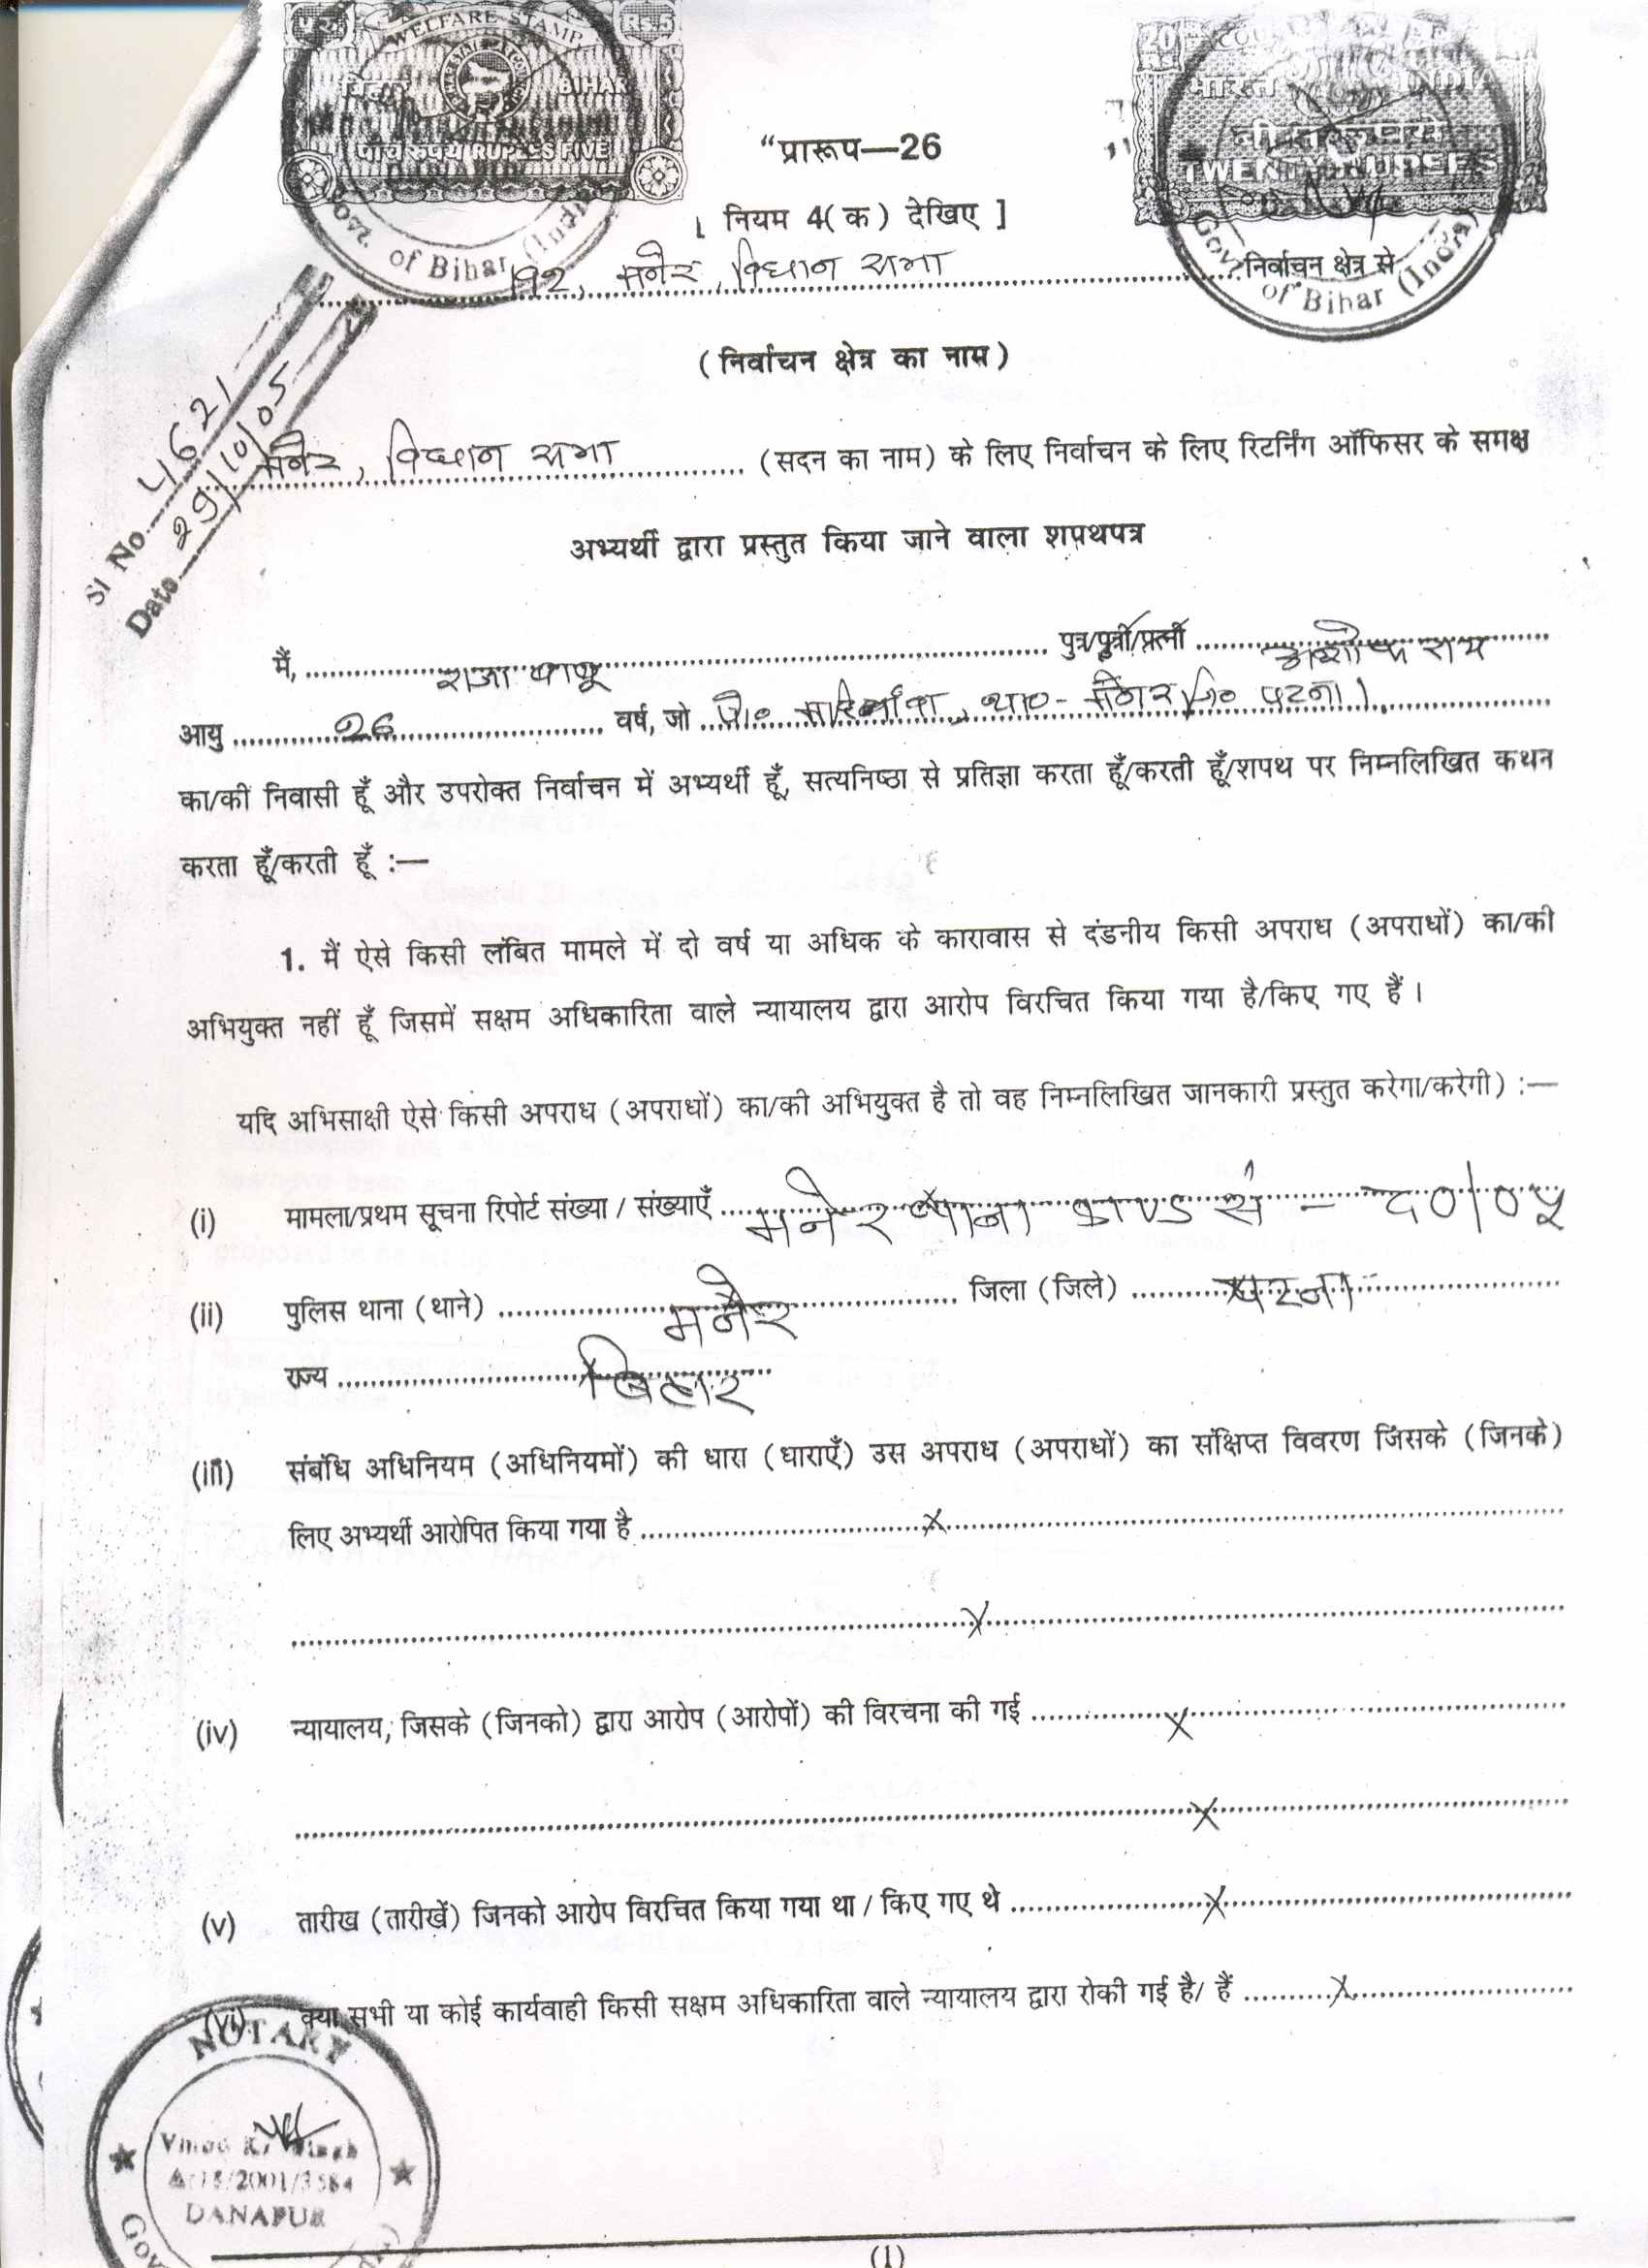 WELFARE STAMP
RS.5
बिहार BIHAR
पाँच रुपये RUPEES FIVE
Govt. of Bihar (India)
20
भारत INDIA
बीस रुपये
TWENTY RUPEES
Govt. of Bihar (India)
“प्रारूप—26
[ नियम 4( क ) देखिए ]
192, मनेर, विधान सभा निर्वाचन क्षेत्र से
( निर्वाचन क्षेत्र का नाम )
Sl No. 4621
Date 29/10/05
मनेर, विधान सभा (सदन का नाम) के लिए निर्वाचन के लिए रिटर्निंग ऑफिसर के समक्ष
अभ्यर्थी द्वारा प्रस्तुत किया जाने वाला शपथपत्र
मैं, राजा बाबू पुत्र/पुत्री/पत्नी अशोक राय
आयु 26 वर्ष, जो थाना- मनेर जि० पटना।
का/की निवासी हूँ और उपरोक्त निर्वाचन में अभ्यर्थी हूँ, सत्यनिष्ठा से प्रतिज्ञा करता हूँ/करती हूँ/शपथ पर निम्नलिखित कथन
करता हूँ/करती हूँ :—
1. मैं ऐसे किसी लंबित मामले में दो वर्ष या अधिक के कारावास से दंडनीय किसी अपराध (अपराधों) का/की
अभियुक्त नहीं हूँ जिसमें सक्षम अधिकारिता वाले न्यायालय द्वारा आरोप विरचित किया गया है/किए गए हैं ।
यदि अभिसाक्षी ऐसे किसी अपराध (अपराधों) का/की अभियुक्त है तो वह निम्नलिखित जानकारी प्रस्तुत करेगा/करेगी) :—
(i) मामला/प्रथम सूचना रिपोर्ट संख्या / संख्याएँ मनेर थाना काण्ड सं - 80/05
(ii) पुलिस थाना (थाने) मनेर जिला (जिले) पटना
राज्य बिहार
(iii) संबंधि अधिनियम (अधिनियमों) की धारा (धाराएँ) उस अपराध (अपराधों) का संक्षिप्त विवरण जिसके (जिनके)
लिए अभ्यर्थी आरोपित किया गया है X
X
(iv) न्यायालय, जिसके (जिनको) द्वारा आरोप (आरोपों) की विरचना की गई X
X
(v) तारीख (तारीखें) जिनको आरोप विरचित किया गया था / किए गए थे X
(vi) क्या सभी या कोई कार्यवाही किसी सक्षम अधिकारिता वाले न्यायालय द्वारा रोकी गई है/ हैं X
NOTARY
Vinod Kr Singh
2001/3584
DANAPUR
(1)